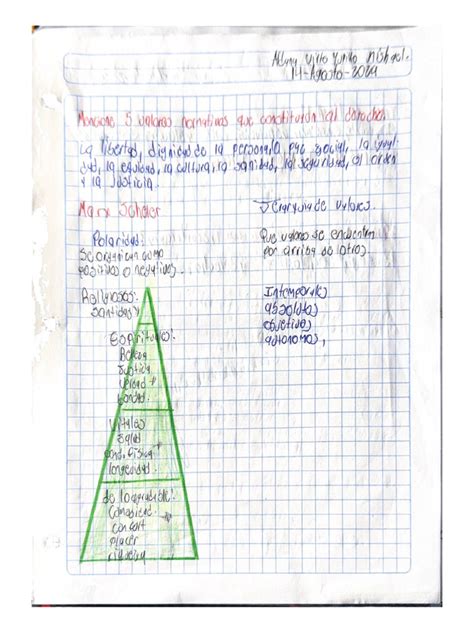 14-Agosto-2024
Mencione 5 valores normativos que constituyen al derecho.
La libertad, dignidad de la persona, paz social, la
dad, la equidad, la cultura, la sanidad, la seguridad, el orden
y la justicia.
Max Scheler
Jerarquia de valores.
Polaridad:
Se organizan como
positivos o negativos.
Que valores se encuentran
por arriba de otros.
Religiosos:
santidad
Espirituales:
Belleza
Justicia
verdad
bondad.
Vitales
Salud
cond. física
longevidad.
de lo agradable:
Comodidad
confort
placer
riqueza
Intemporales
absolutos
objetivos
autonomos,